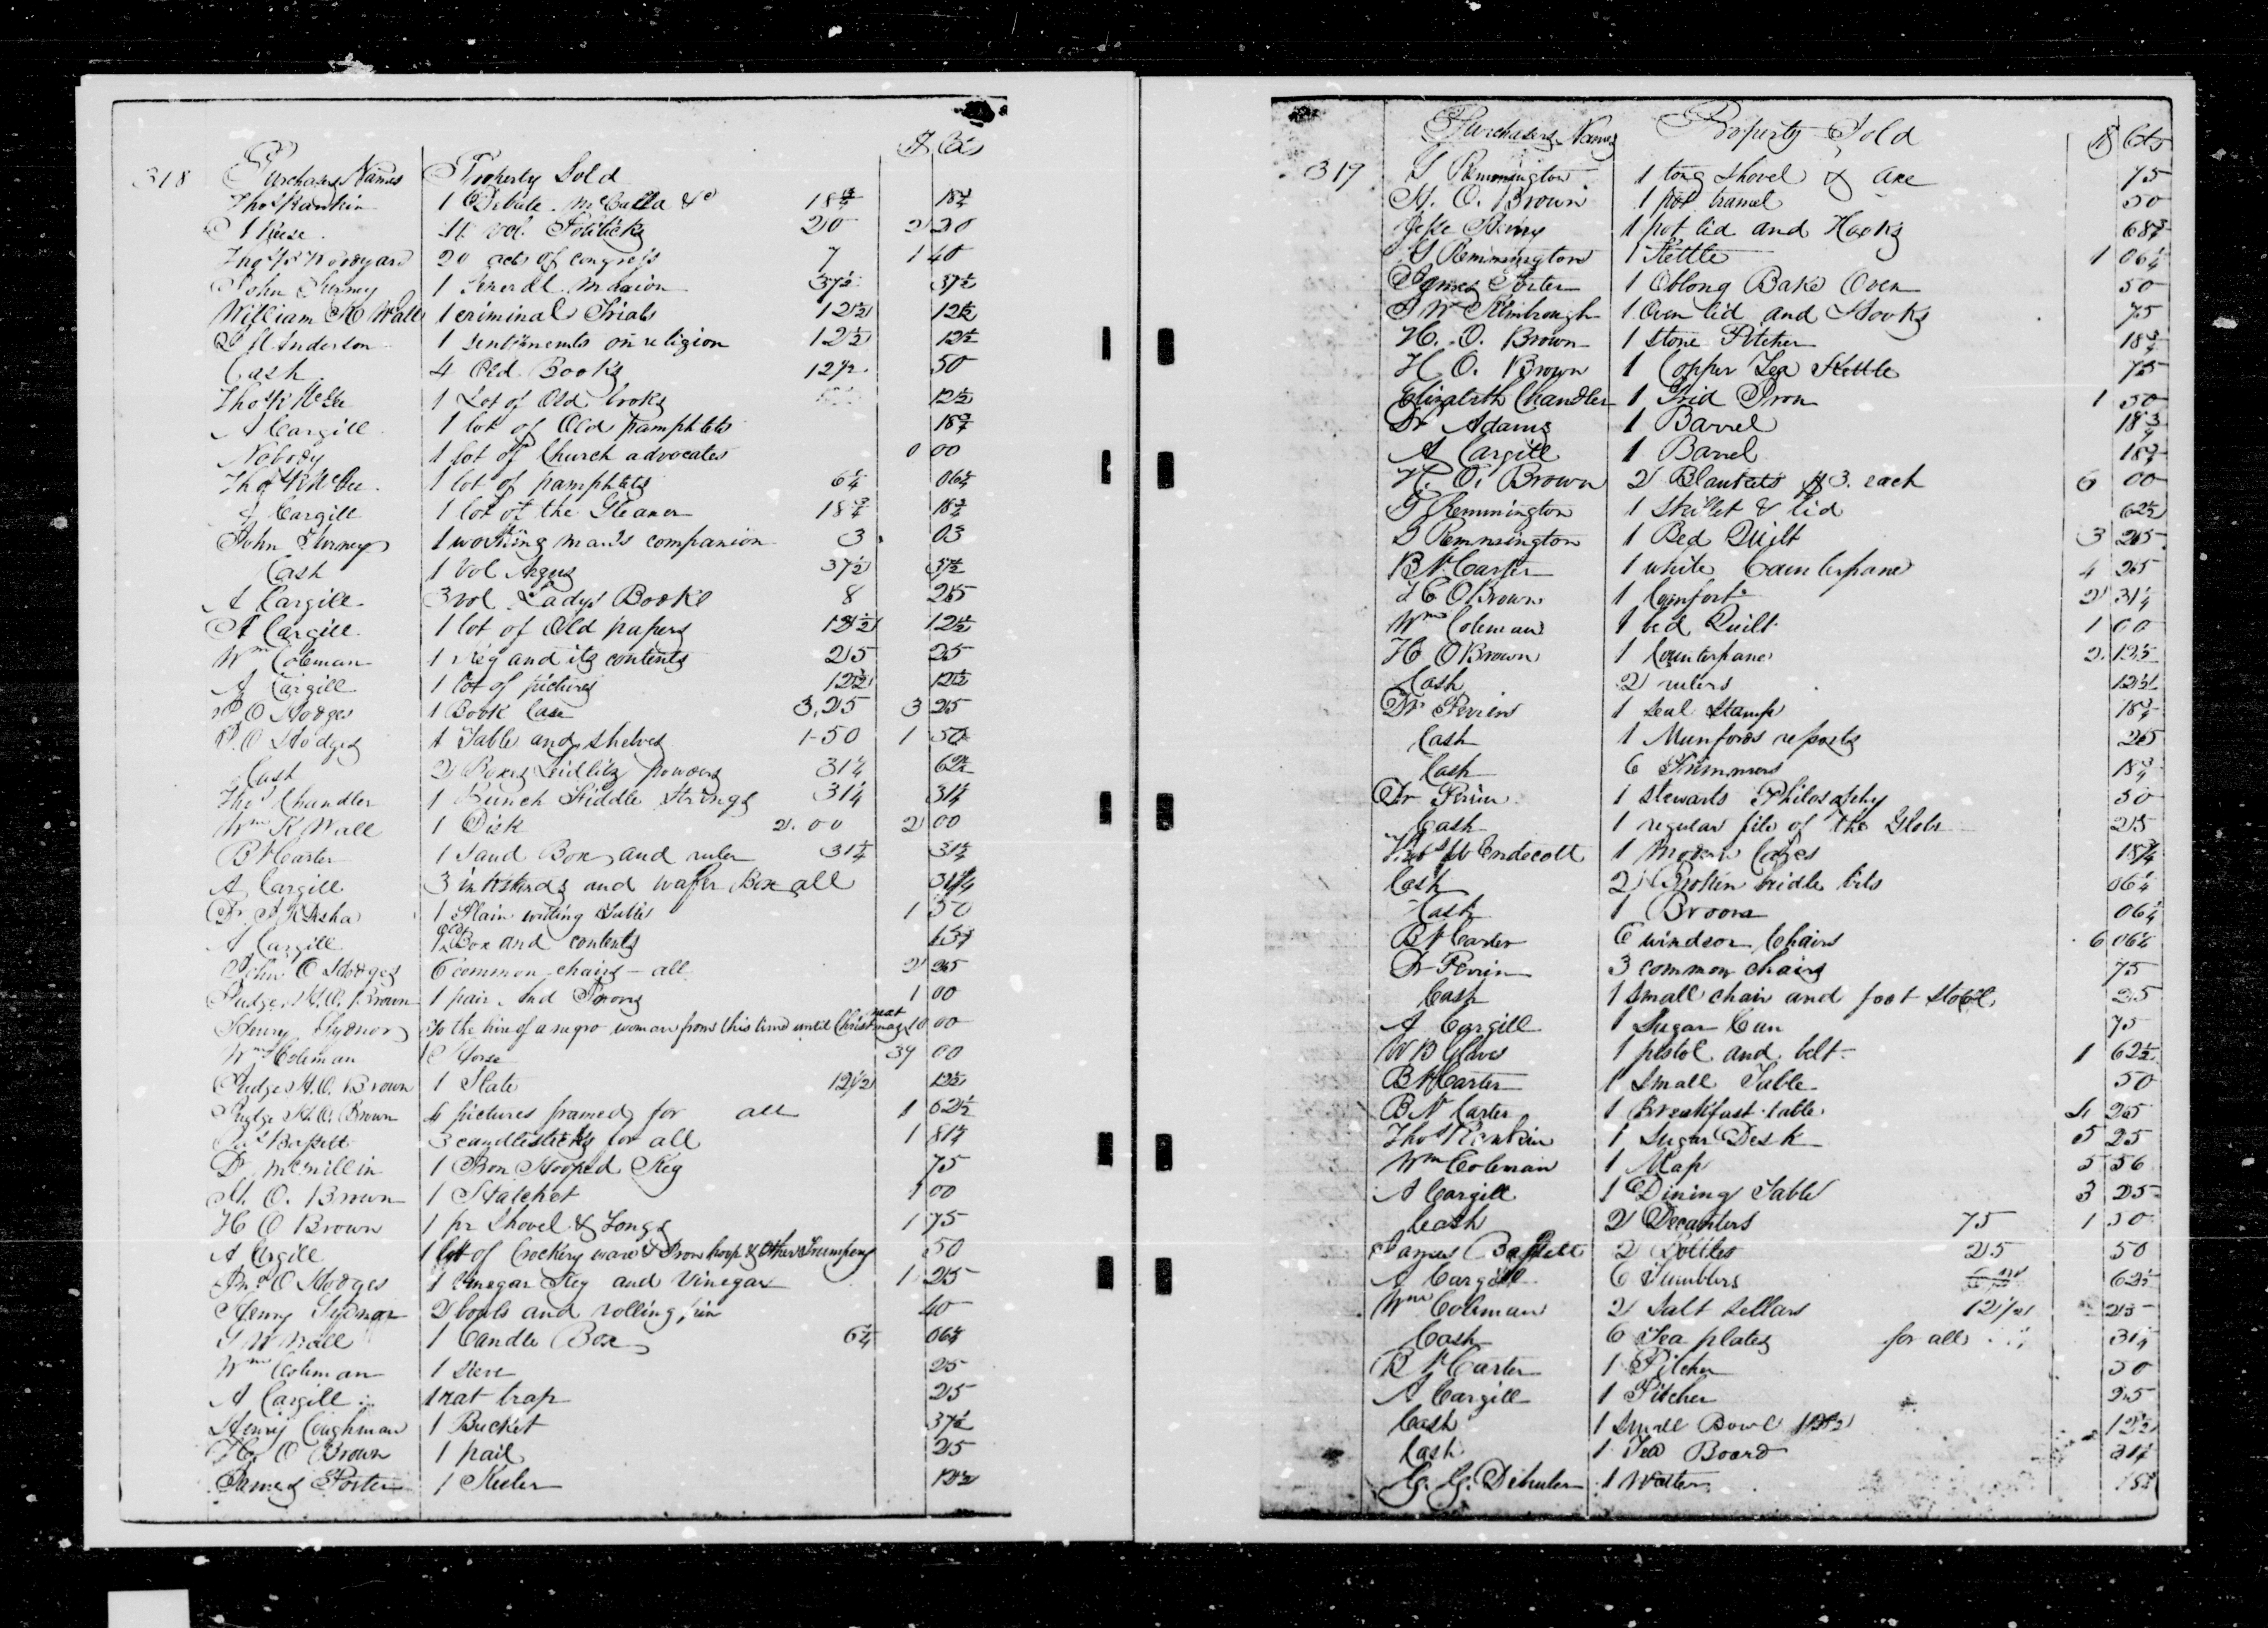 318 Purchasers Names Property Sold $ Cts
Thos Rankin 1 Debate McCalla &c 18¾ 18¾
11 vol. Politicks 20 2 20
20 acts of congress 7 1 40
John Turney 1 General Marion 37½ 37½
William K Wall 1 criminal Trials 12½ 12½
Anderson 1 sentiments on religion 12½ 12½
Cash 4 Old Books 12½ 50
Thos R McGee 1 Lot of Old books 12½
A Cargill 1 lot of Old pamphlets 18¾
Nobody 1 lot of Church advocates 0 00
Thos R McGee 1 lot of pamphlets 6¼ 06¼
A Cargill 1 lot of the Gleaner 18¾ 18¾
John Turney 1 working mans companion 3 03
Cash 1 Vol Argus 37½ 37½
A Cargill 3 vol Ladys Book 8 25
A Cargill 1 lot of Old papers 12½ 12½
Wm Coleman 1 Keg and its contents 25 25
A Cargill 1 lot of pictures 12½ 12½
O Hodges 1 Book Case 3,25 3 25
O Hodges 1 Table and shelves 1-50 1 50
Cash 2 Boxes Seidlitz powders 31¼ 62½
Thos Chandler 1 Bunch Fiddle Strings 31¼ 31¼
Wm K Wall 1 Disk 2.00 2 00
B N Carter 1 Sand Box and ruler 31¼ 31¼
A Cargill 3 inkstands and wafer Box all 31¼
Dr J K Desha 1 Plain writing Table 1 50
A Cargill 1 old Box and contents
John O Hodges 6 common chairs - all 2 25
Judge H. O. Brown 1 pair And Irons 1 00
Henry Sydnor To the hire of a negro woman from this time until Christmas next 10 00
Wm Coleman 1 Horse 39 00
Judge H. O. Brown 1 Slate 12½ 12½
Judge H. O. Brown 4 pictures framed for all 1 62½
Jas Bassett 3 candlesticks for all 1 81¼
D McMillin 1 Iron Hooped Keg 75
H. O. Brown 1 Hatchet 1 00
H O Brown 1 pr Shovel & Tongs 1 75
A Cargill 1 lot of Crockery ware & Iron hoop & Other Trumpery 50
Jno O Hodges 1 Vinegar Keg and Vinegar 1 25
Henry Sydnor 2 bowls and rolling pin 40
Wall 1 Candle Box 6¼ 06¼
Wm Coleman 1 sieve 25
A Cargill 1 rat trap 25
Henry Coughman 1 Bucket 37½
H. O Brown 1 pail 25
James Porter 1 Keeler 12½
319 Purchasers Names Property Sold $ Cts
G Remmington 1 tong shovel & axe 75
H. O. Brown 1 pot tramel 50
Jesse Berry 1 pot lid and Hooks 68¾
G Remmington 1 Kettle 1 06¼
James Porter 1 Oblong Bake Oven 50
Kimbrough 1 Oven lid and Hooks 75
H. O. Brown 1 stone Pitcher 18¾
H O. Brown 1 Copper Tea Kettle 75
Elizabeth Chandler 1 Grid Iron 1 50
Dr Adams 1 Barrel 18¾
A Cargill 1 Barrel 18¾
H. O. Brown 2 Blankets $3. each 6 00
G Remmington 1 skillet & lid 62½
G Remmington 1 Bed Quilt 3 25
B N Carter 1 white Counterpane 4 25
H O Brown 1 Comfort 2 31¼
Wm Coleman 1 bed Quilt 1 00
H O Brown 1 Counterpane 2
Cash 2 rulers 12½
Dr Perrin 1 Seal Stamp 18¾
Cash 1 Munfords reports 25
Cash 6 Trimmers 18¾
Dr Perrin 1 stewarts Philosophy 50
Cash 1 regular file of the Globe 25
Endecott 1 Modern 18¾
Cash 2 Broken bridle bits 06¼
Cash 1 Broom 06¼
B N Carter 6 windsor Chairs 6 06¼
Dr Perrin 3 common chairs 75
Cash 1 small chair and foot stool 25
A Cargill 1 Sugar Can 75
W B Glaves 1 pistol and belt 1 62½
B N Carter 1 Small Table 50
B N Carter 1 Breakfast table 4 25
Thos Rankin 1 Sugar Desk 5 25
Wm Coleman 1 Map 5 56
A Cargill 1 Dining Table 3 25
Cash 2 Decanters 75 1 50
James Bassett 2 Bottles 25 50
A Cargill 6 Tumblers 62½
Wm Coleman 2 Salt Sellars 12½ 25
Cash 6 Tea plates for all 31¼
B N Carter 1 Pitcher 50
A Cargill 1 Pitcher 25
Cash 1 Small Bowl 12½ 12½
Cash 1 Tea Board 31¼
G. G. 1 Waiter 18¾